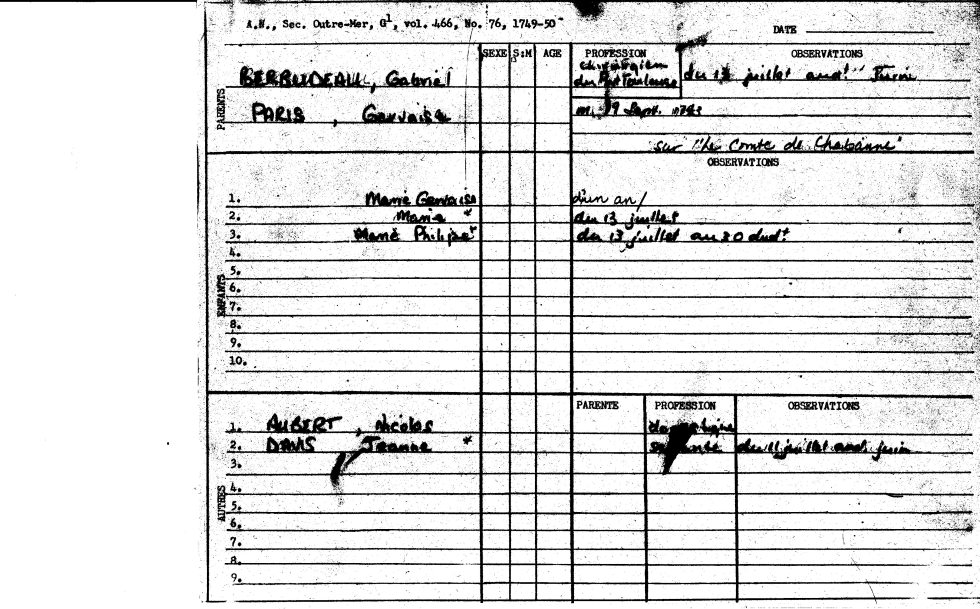 A.N., Sec. Outre-Mer, G1, vol. 466, No. 76, 1749-50
DATE
SEXE S:M AGE PROFESSION OBSERVATIONS
PARENTS
BERBUDEAU, Gabriel chirurgien du Port Toulouse du 13 juillet
PARIS, Gervaise 19 Sept.
sur "Le Comte de Chabanne"
OBSERVATIONS
ENFANTS
1. Marie Gervaise d'un an/
2. Marie * du 13 juillet
3. Marie Philippe * du 13 juillet au 30 dudt
4.
5.
6.
7.
8.
9.
10.
PARENTE PROFESSION OBSERVATIONS
AUTRES
1. AUBERT, Nicolas domestique
2. DAVIS Jeanne * servante du 11 juillet
3.
4.
5.
6.
7.
8.
9.